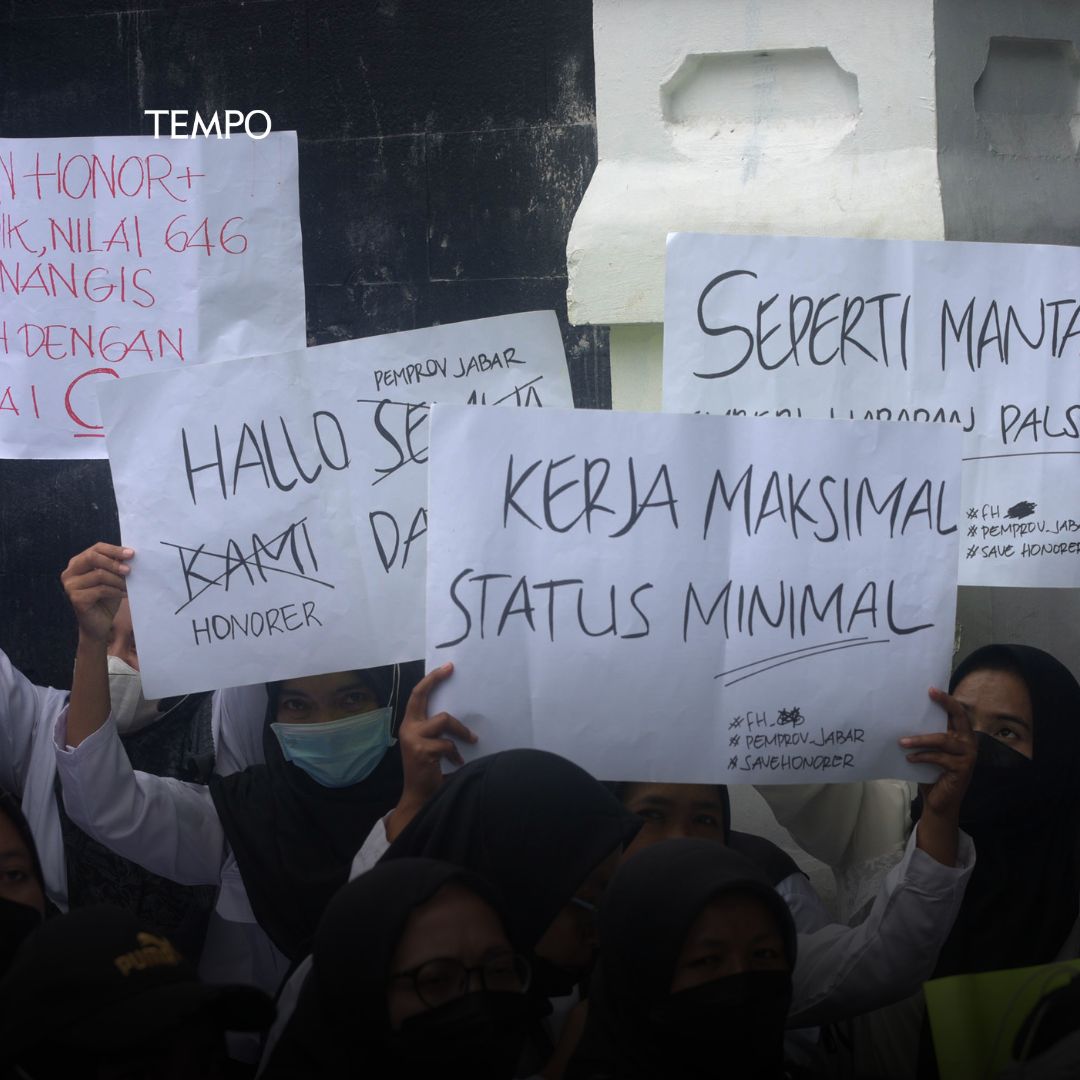 TEMPO
N HONOR+
IK, NILAI 646
NANGIS
H DENGAN
AI
PEMPROV JABAR
HALLO
KAMI DA
HONORER
SEPERTI MANTA
HARAPAN PALS
#FH
#PEMPROV_JABA
#SAVE HONORER
KERJA MAKSIMAL
STATUS MINIMAL
#FH
#PEMPROV_JABAR
#SAVEHONORER